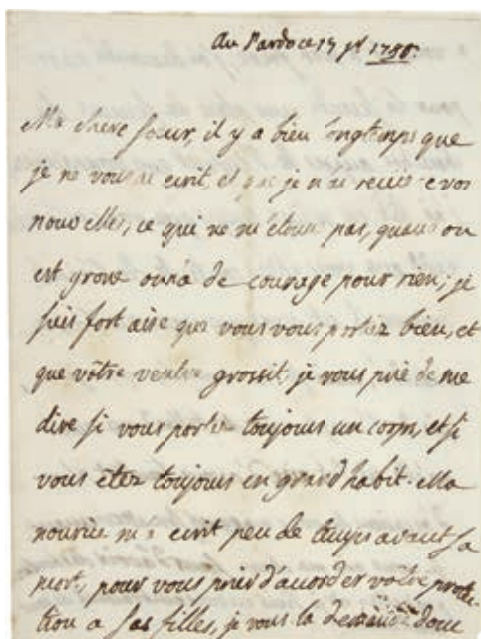 Au Pardo ce 17 jer 1786.
Ma chere sœur, il y a bien longtemps que
je ne vous ai ecrit et que je n'ai recus de vos
nouvelles, ce qui ne m'etoñe pas, quand on
est grosse on n'á de courage pour rien; je
suis fort aise que vous vous portez bien, et
que vôtre ventre grossit, je vous prie de me
dire si vous portez toujours un corps, et si
vous étez toujours en grand habit. Ma
nourice m'a ecrit peu de temps avant sa
mort, pour vous prier d'accorder votre protec-
tion a ses filles, je vous la demande donc